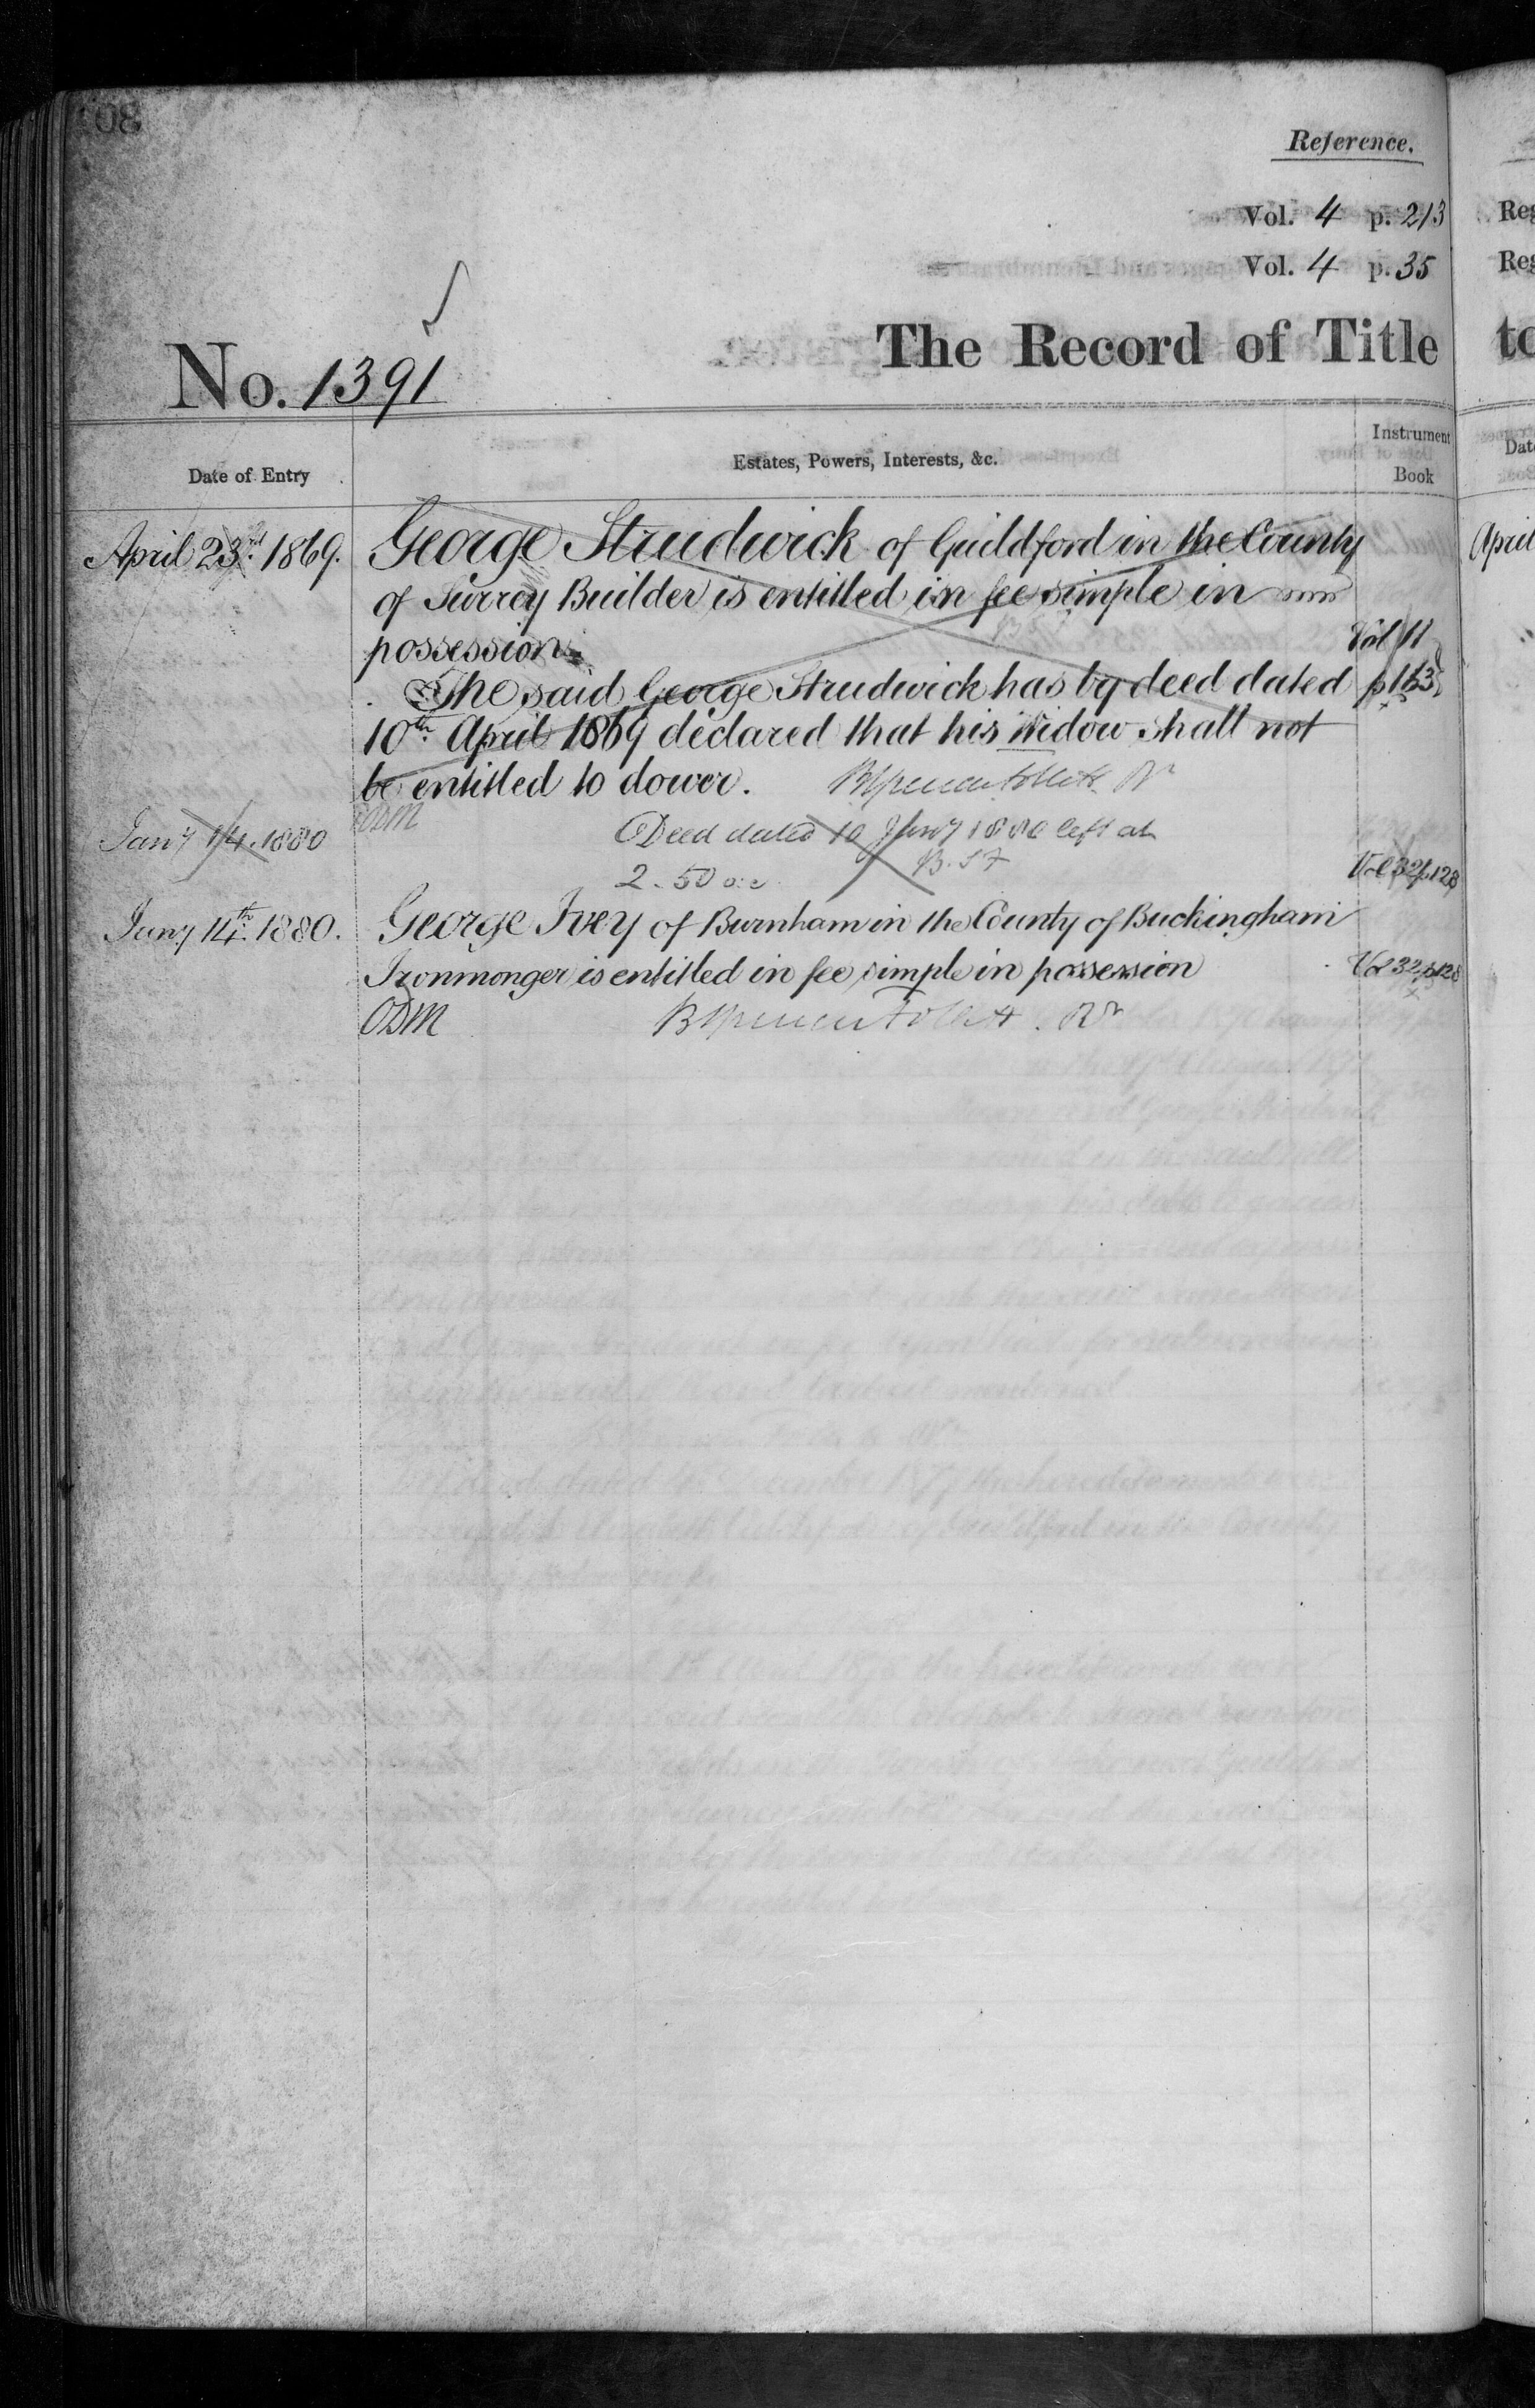 Reference.
Vol. 4 p. 213
Vol. 4 p. 35
No. 1391
The Record of Title
Date of Entry
Estates, Powers, Interests, &c.
Instrument Book
April 23rd 1869.
George Strudwick of Guildford in the County
of Surrey Builder is entitled in fee simple in
possession.
Vol 11
The said George Strudwick has by deed dated
p 163
10th April 1869 declared that his Widow shall not
be entitled to dower.
ODM
Jany 14. 1880
Deed dated 10 Jany 1880 left at
2.50
B.S.F
Vol 32 p. 128
Jany 14th 1880.
George Ivey of Burnham in the County of Buckingham
Ironmonger is entitled in fee simple in possession
Vol 32 p. 128
ODM
Reg
Reg
to
Dat
April